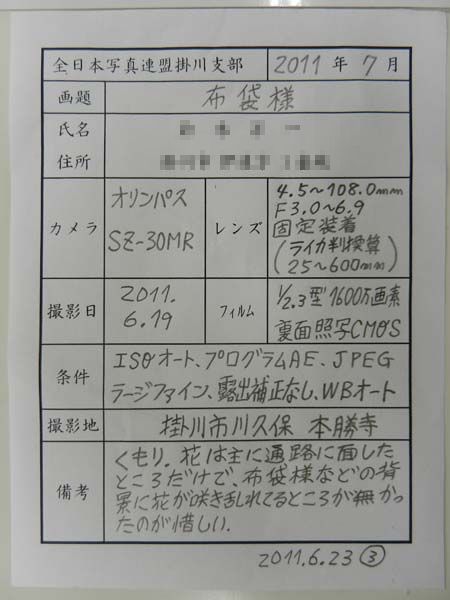 全日本写真連盟掛川支部 2011年7月
画題 布袋様
氏名
住所
カメラ オリンパス
SZ-30MR
レンズ 4.5~108.0mm
F3.0~6.9
固定装着
(ライカ判換算
25~600mm)
撮影日 2011.
6.19
フィルム 1/2.3型1600万画素
裏面照写CMOS
条件 ISOオート、プログラムAE、JPEG
ラージファイン、露出補正なし、WBオート
撮影地 掛川市川久保 本勝寺
備考 くもり。花は主に通路に面した
ところだけで、布袋様などの背
景に花が咲き乱れてるところが無かっ
たのが惜しい.
2011.6.23 ③